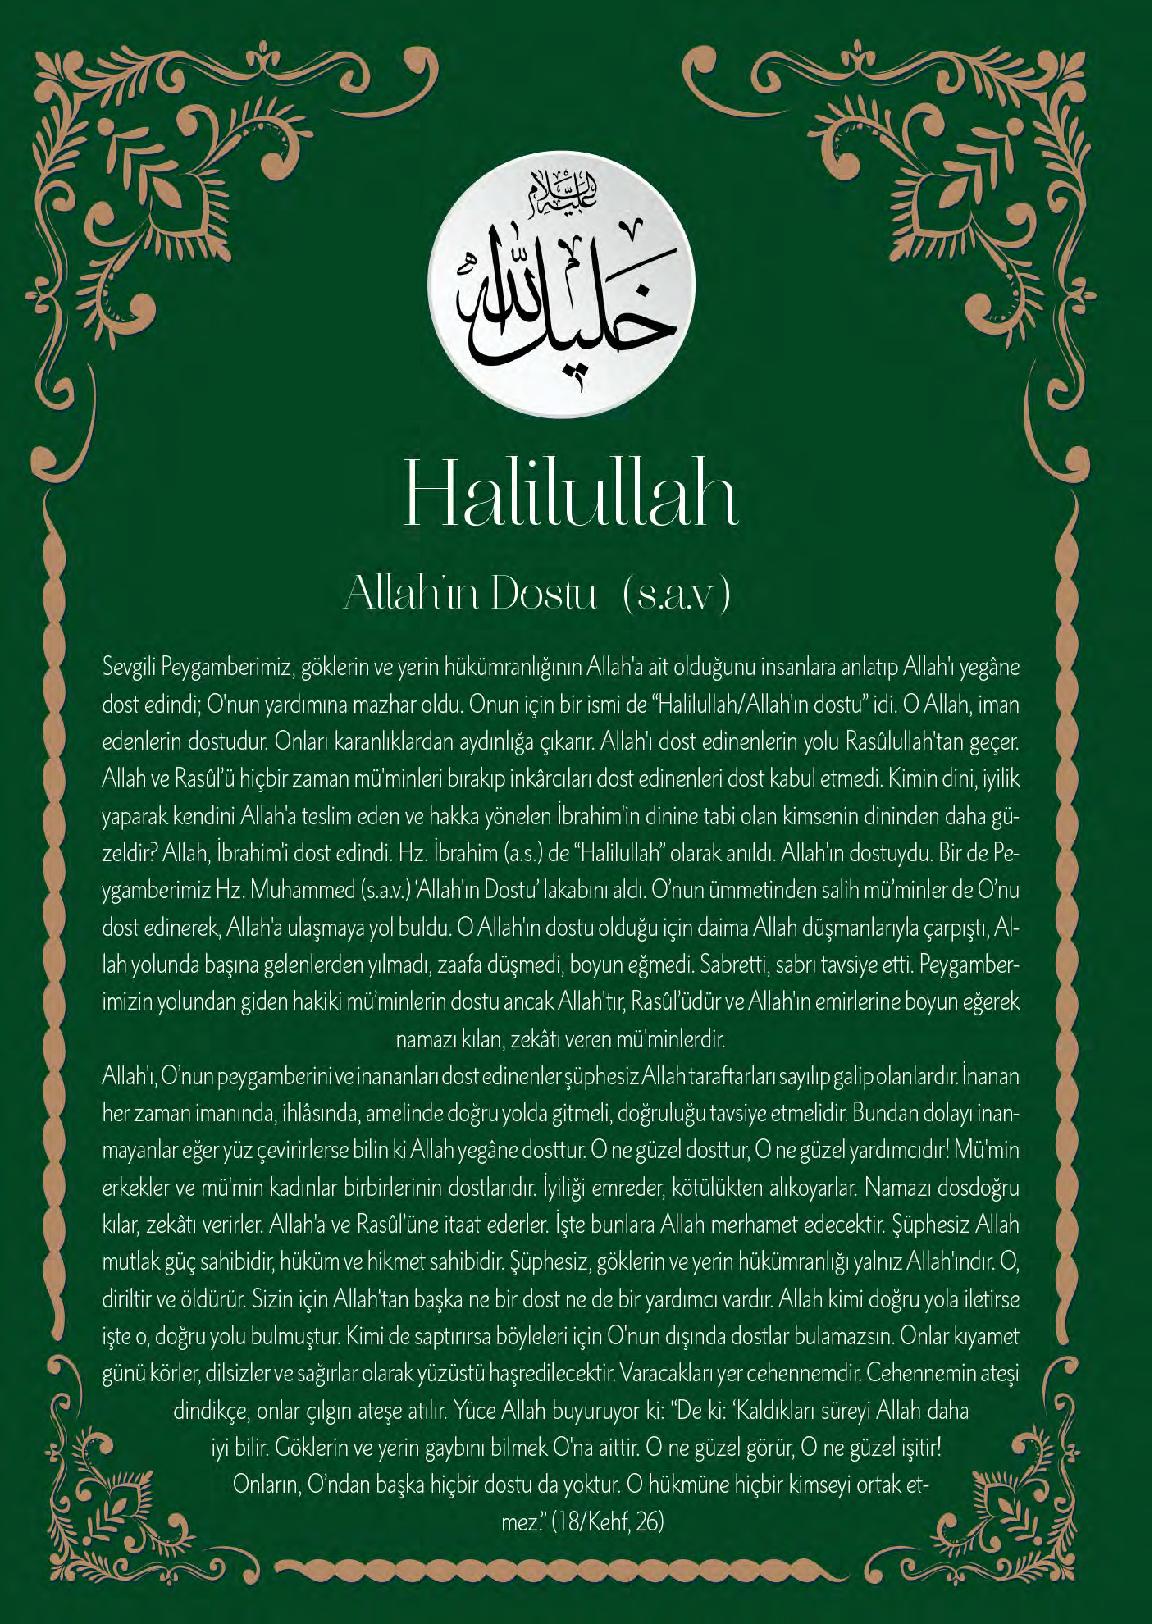 عليه السلام
خليل الله
Halilullah
Allah'ın Dostu (s.a.v)
Sevgili Peygamberimiz, göklerin ve yerin hükümranlığının Allah'a ait olduğunu insanlara anlatıp Allah'ı yegâne
dost edindi; O'nun yardımına mazhar oldu. Onun için bir ismi de “Halilullah/Allah'ın dostu” idi. O Allah, iman
edenlerin dostudur. Onları karanlıklardan aydınlığa çıkarır. Allah'ı dost edinenlerin yolu Rasûlullah'tan geçer.
Allah ve Rasûl’ü hiçbir zaman mü'minleri bırakıp inkârcıları dost edinenleri dost kabul etmedi. Kimin dini, iyilik
yaparak kendini Allah'a teslim eden ve hakka yönelen İbrahim'in dinine tabi olan kimsenin dininden daha gü-
zeldir? Allah, İbrahim'i dost edindi. Hz. İbrahim (a.s.) de “Halilullah” olarak anıldı. Allah'ın dostuydu. Bir de Pe-
ygamberimiz Hz. Muhammed (s.a.v.) ‘Allah'ın Dostu’ lakabını aldı. O’nun ümmetinden salih mü’minler de O’nu
dost edinerek, Allah'a ulaşmaya yol buldu. O Allah'ın dostu olduğu için daima Allah düşmanlarıyla çarpıştı, Al-
lah yolunda başına gelenlerden yılmadı, zaafa düşmedi, boyun eğmedi. Sabretti, sabrı tavsiye etti. Peygamber-
imizin yolundan giden hakiki mü’minlerin dostu ancak Allah'tır, Rasûl’üdür ve Allah'ın emirlerine boyun eğerek
namazı kılan, zekâtı veren mü'minlerdir.
Allah'ı, O’nun peygamberini ve inananları dost edinenler şüphesiz Allah taraftarları sayılıp galip olanlardır. İnanan
her zaman imanında, ihlâsında, amelinde doğru yolda gitmeli, doğruluğu tavsiye etmelidir. Bundan dolayı inan-
mayanlar eğer yüz çevirirlerse bilin ki Allah yegâne dosttur. O ne güzel dosttur, O ne güzel yardımcıdır! Mü'min
erkekler ve mü'min kadınlar birbirlerinin dostlarıdır. İyiliği emreder, kötülükten alıkoyarlar. Namazı dosdoğru
kılar, zekâtı verirler. Allah'a ve Rasûl'üne itaat ederler. İşte bunlara Allah merhamet edecektir. Şüphesiz Allah
mutlak güç sahibidir, hüküm ve hikmet sahibidir. Şüphesiz, göklerin ve yerin hükümranlığı yalnız Allah'ındır. O,
diriltir ve öldürür. Sizin için Allah'tan başka ne bir dost ne de bir yardımcı vardır. Allah kimi doğru yola iletirse
işte o, doğru yolu bulmuştur. Kimi de saptırırsa böyleleri için O'nun dışında dostlar bulamazsın. Onlar kıyamet
günü körler, dilsizler ve sağırlar olarak yüzüstü haşredilecektir. Varacakları yer cehennemdir. Cehennemin ateşi
dindikçe, onlar çılgın ateşe atılır. Yüce Allah buyuruyor ki: “De ki: ‘Kaldıkları süreyi Allah daha
iyi bilir. Göklerin ve yerin gaybını bilmek O'na aittir. O ne güzel görür, O ne güzel işitir!
Onların, O’ndan başka hiçbir dostu da yoktur. O hükmüne hiçbir kimseyi ortak et-
mez.” (18/Kehf, 26)